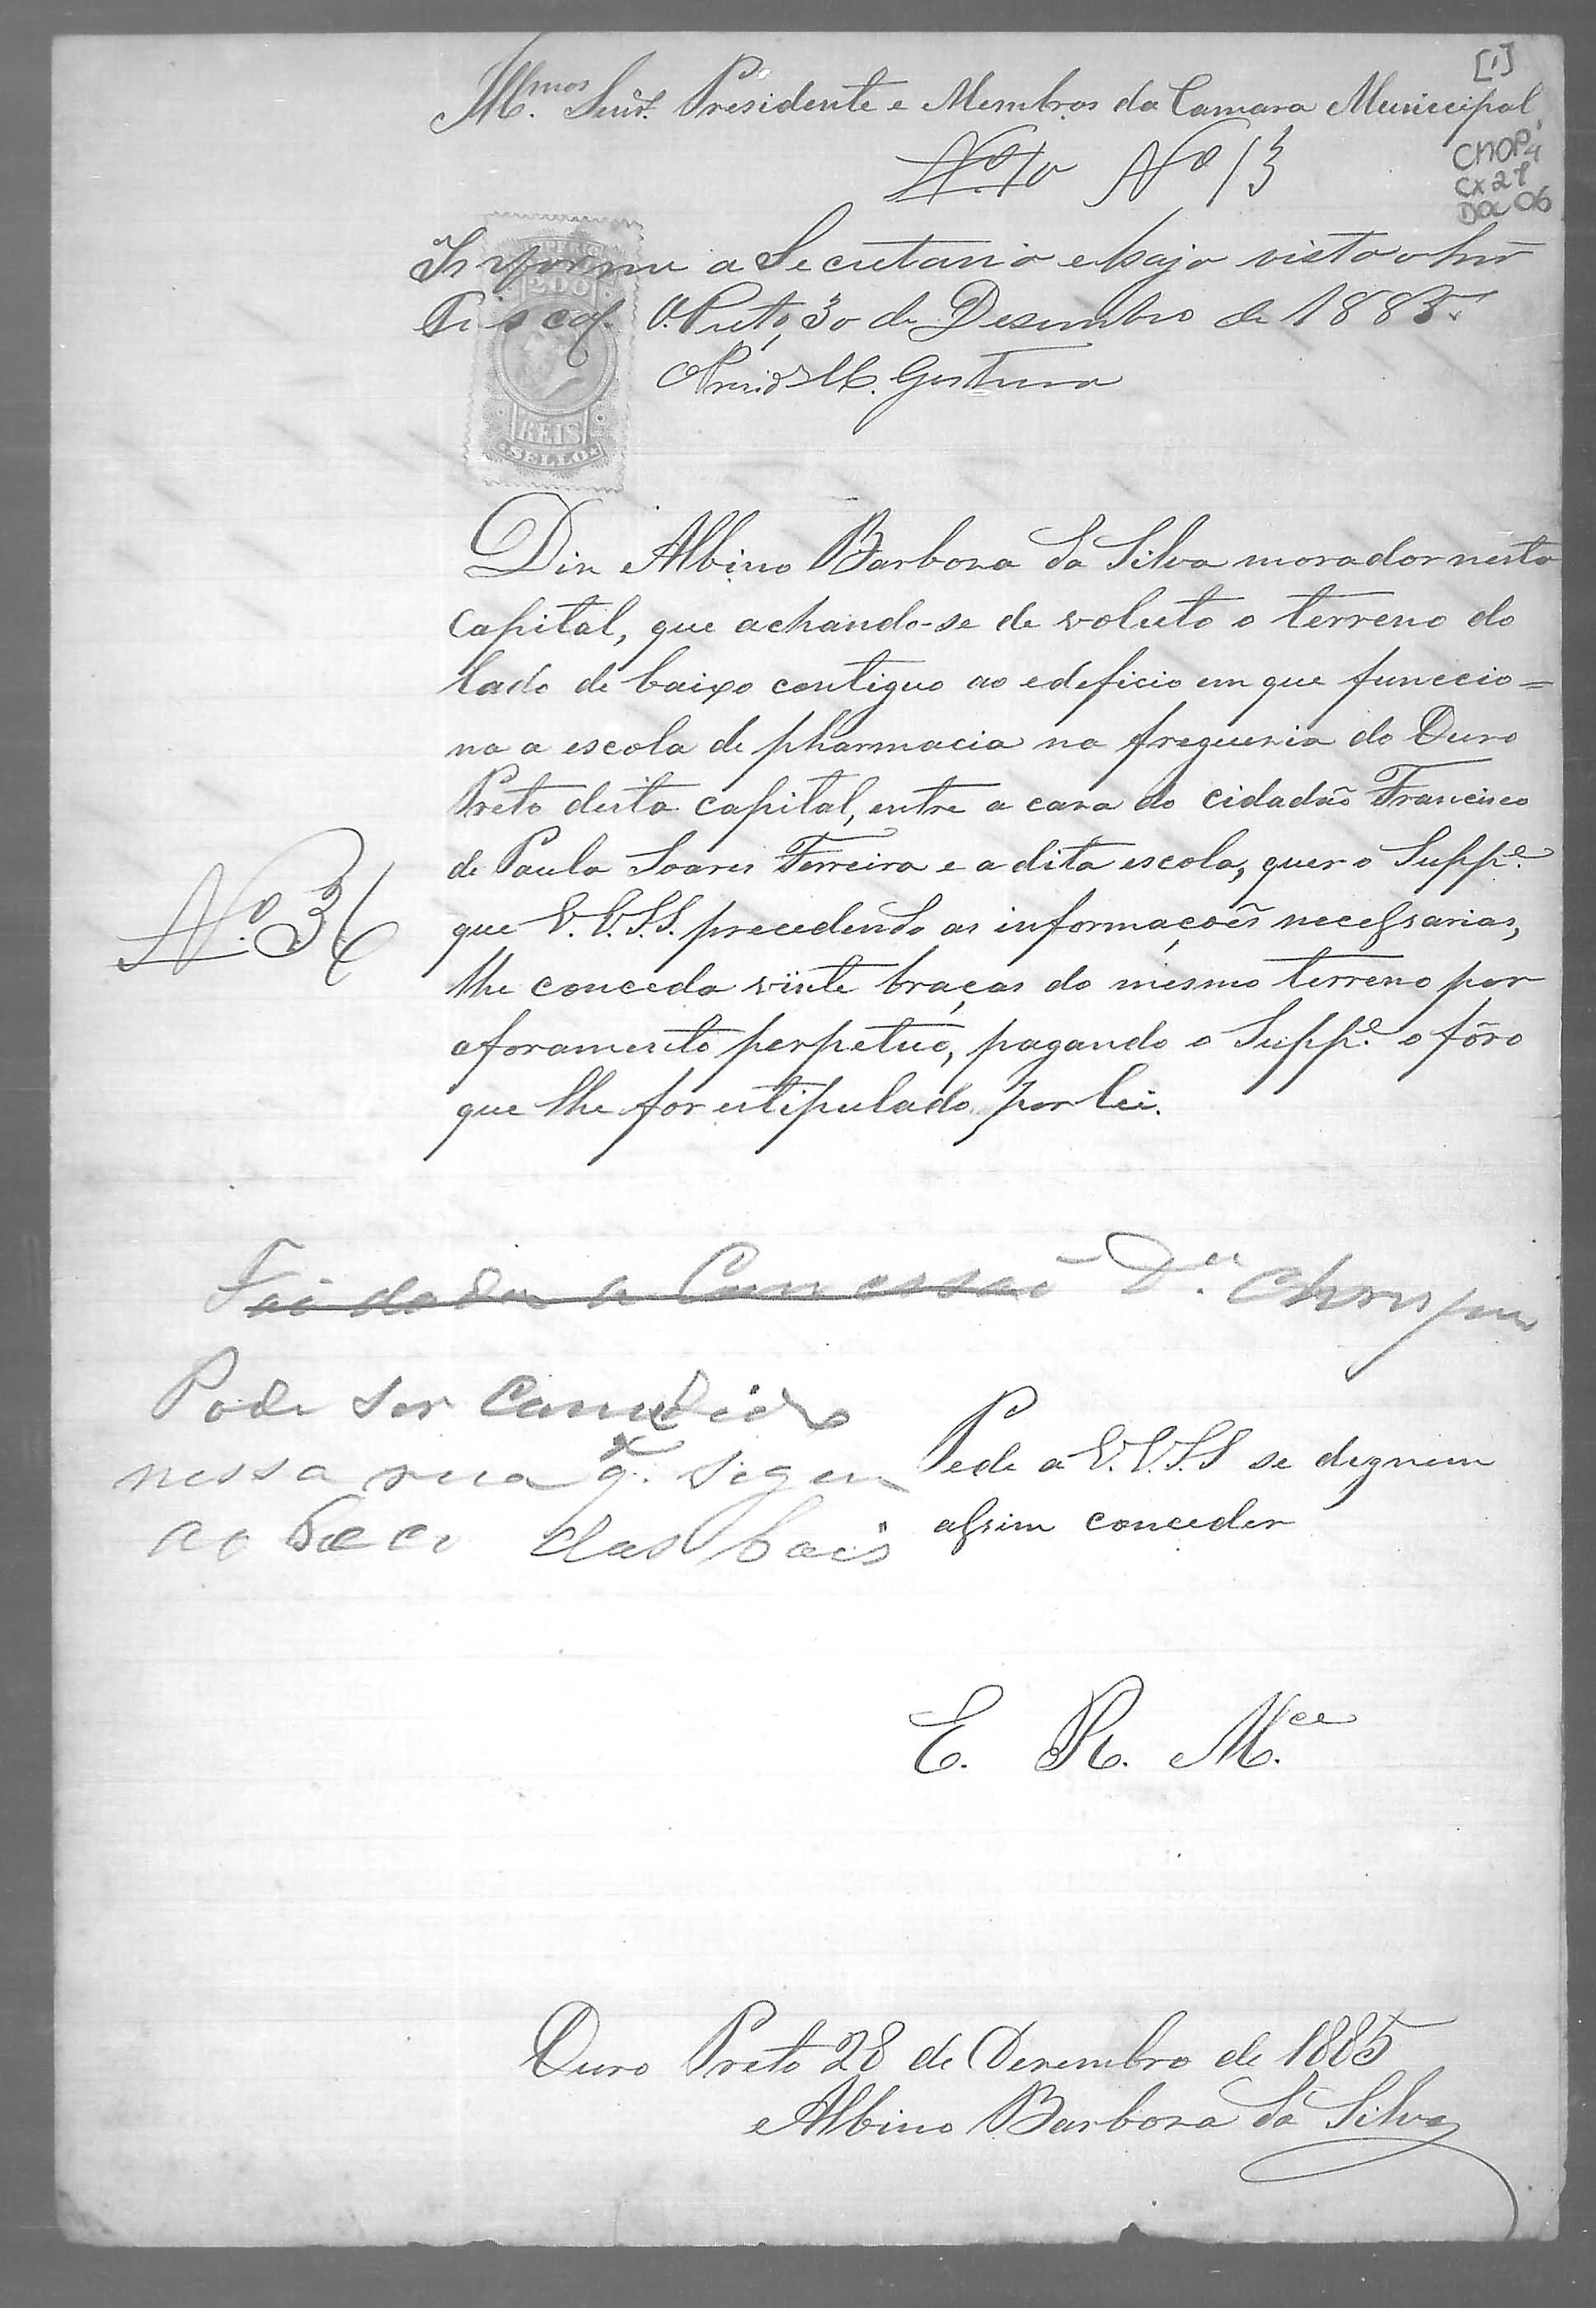 [1]
Illmos Senrs. Presidente e Membros da Camara Municipal,
CMOP
Cx 21
Doc 06
No. 10 No 13
Informe a Secretaria e haja vista o Snr
Fiscal. O. Preto, 30 de Desembro de 1885.
200
REIS
SELLO
Diz Albino Barboza da Silva morador nesta
Capital, que achando-se de voluto o terreno do
lado de baixo contiguo ao edeficio em que funccio=
na a escola de pharmacia na freguezia do Ouro
Preto desta capital, entre a caza do cidadão Francisco
de Paula Soares Ferreira e a dita escola, quer o Suppe.
No. 36
que V.V.S.S. precedendo as informações necessarias,
lhe conceda vinte braças do mesmo terreno por
aforamento perpetuo, pagando o Suppe. o fôro
que lhe for estipulado por lei.
Foi dada a Concessaõ
Pode ser Concedido
nessa rua q. segue
ao Beco das
Pede a V.V.S.S se dignem
assim conceder
E. R. Mce.
Ouro Preto 28 de Dezembro de 1885
Albino Barboza da Silva